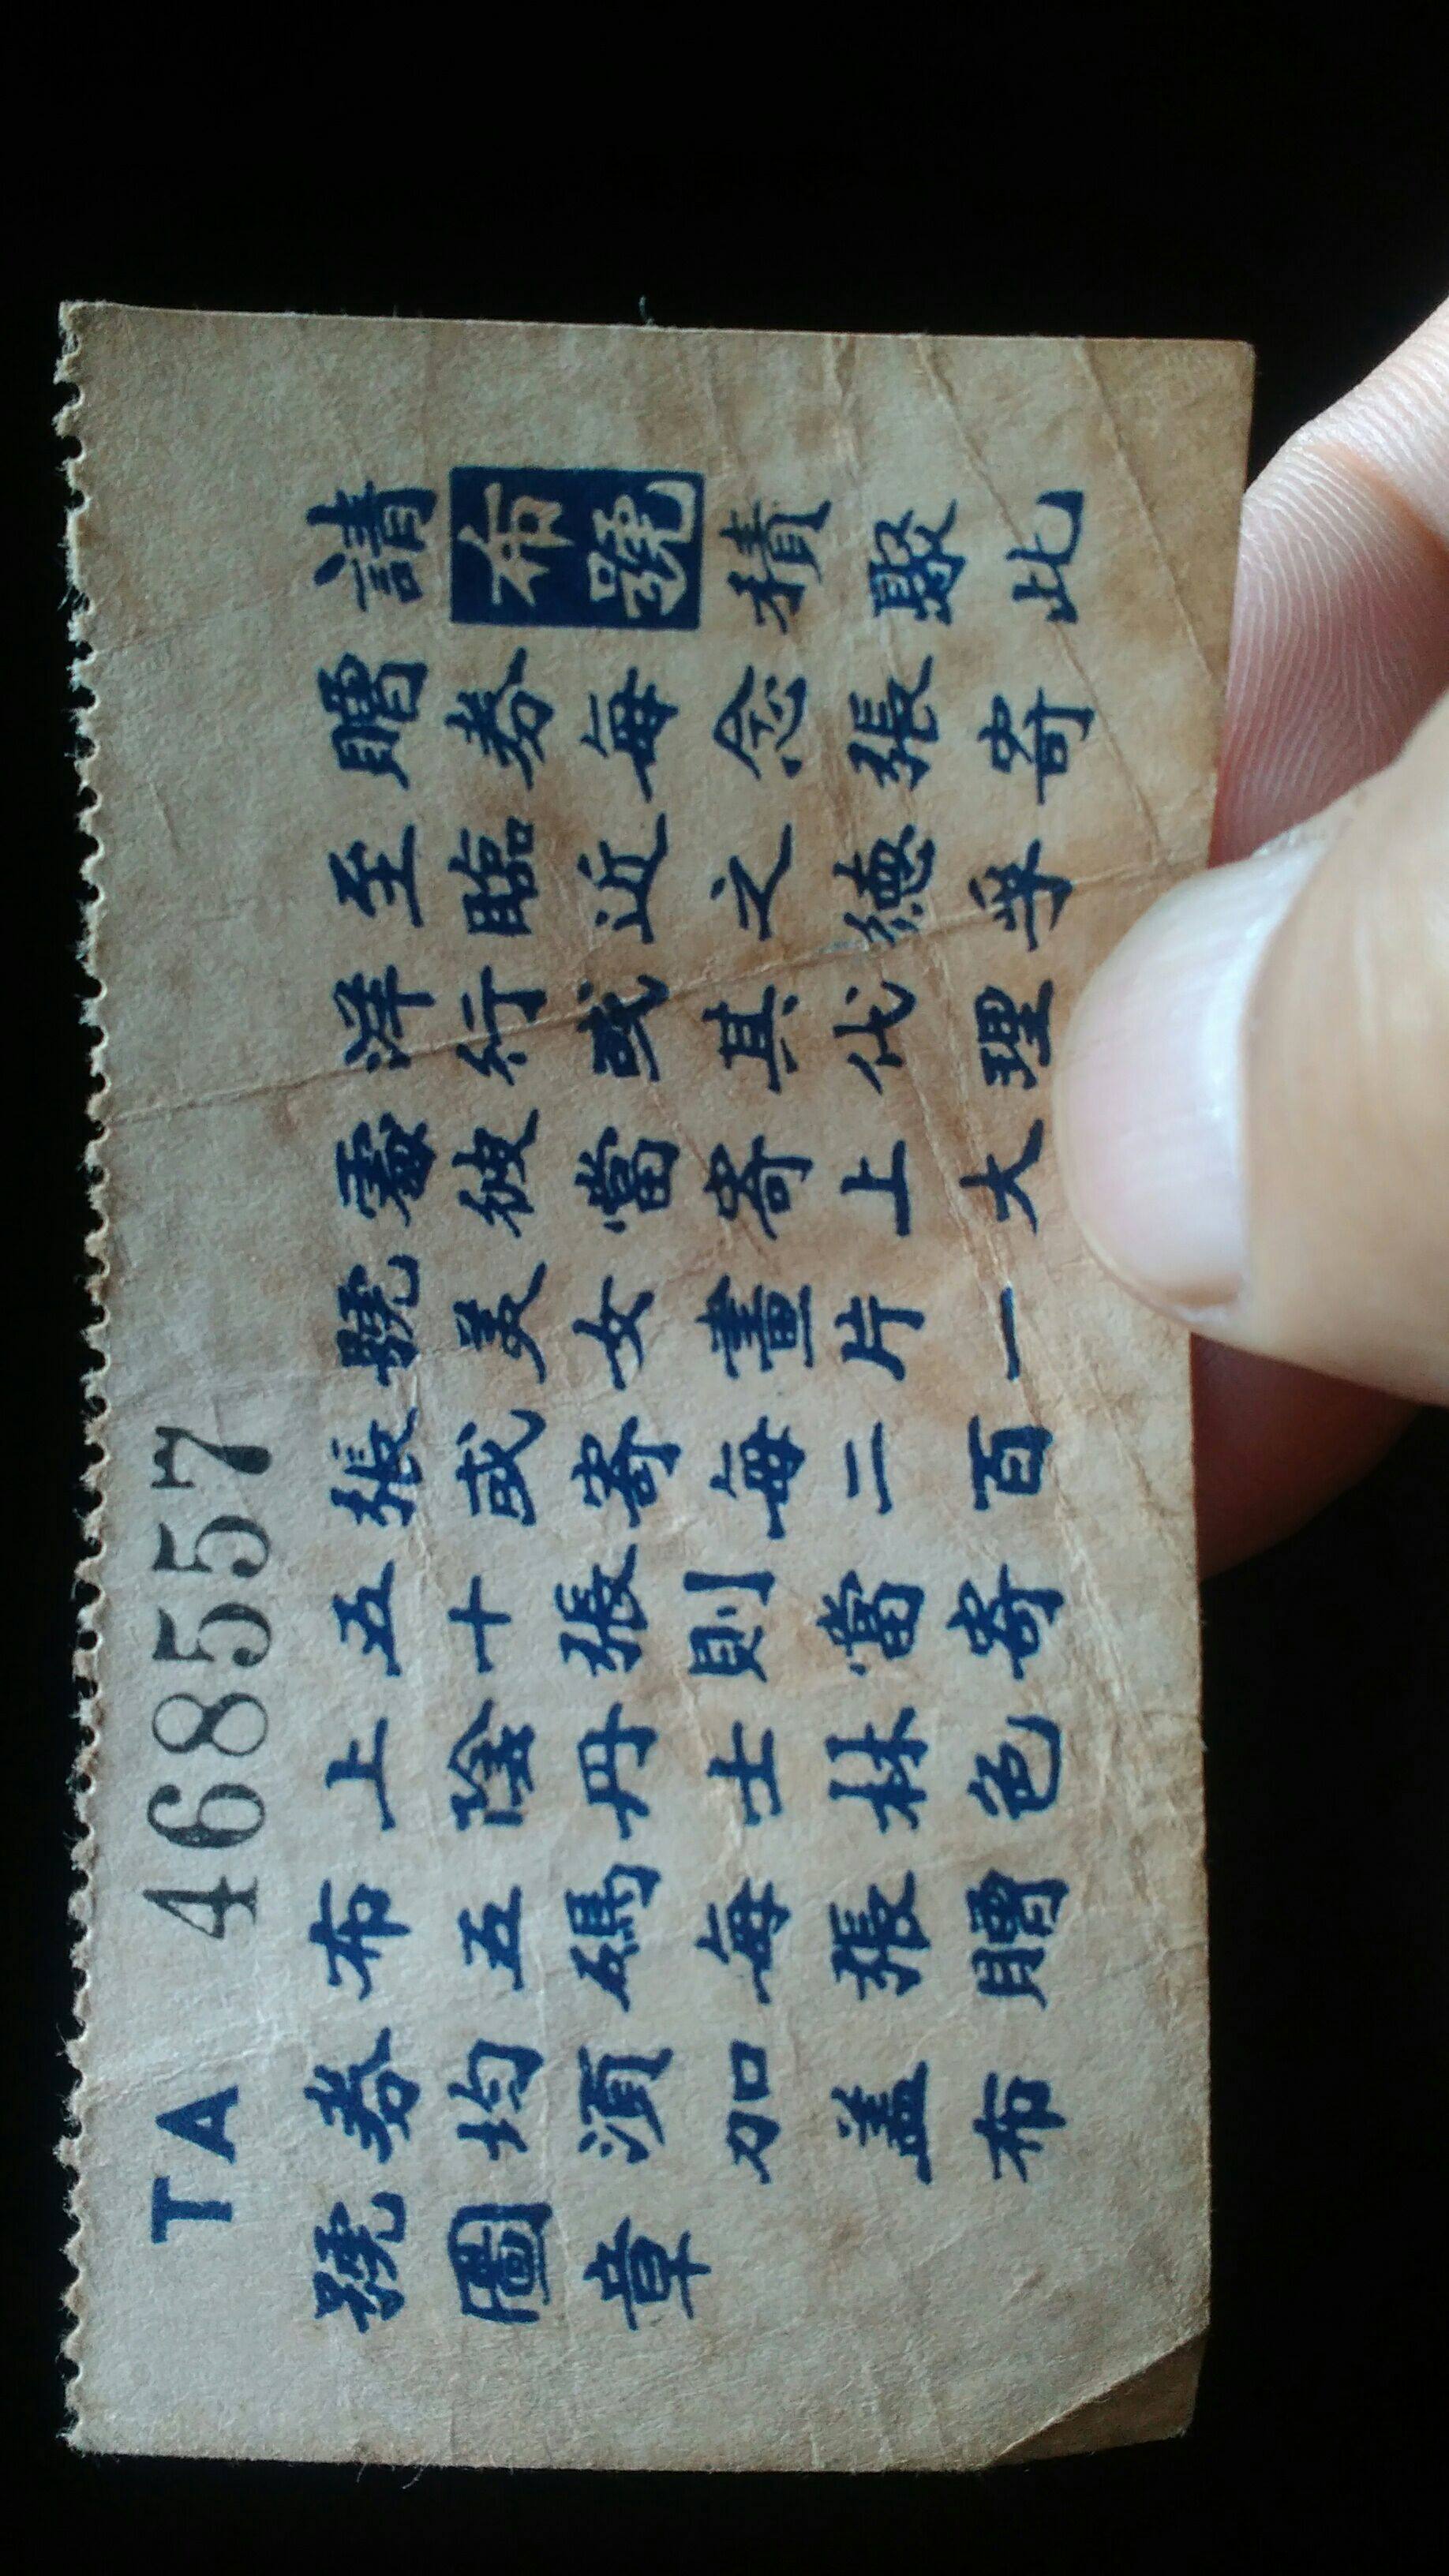 TA 468557
請布號積聚此
贈券每念張寄
至臨近之德孚
洋行或其代理
處彼當寄上大
號美女畫片一
張或寄每二百
五十張則當寄
上陰丹士林色
布五碼每張贈
券均須加蓋布
號圖章